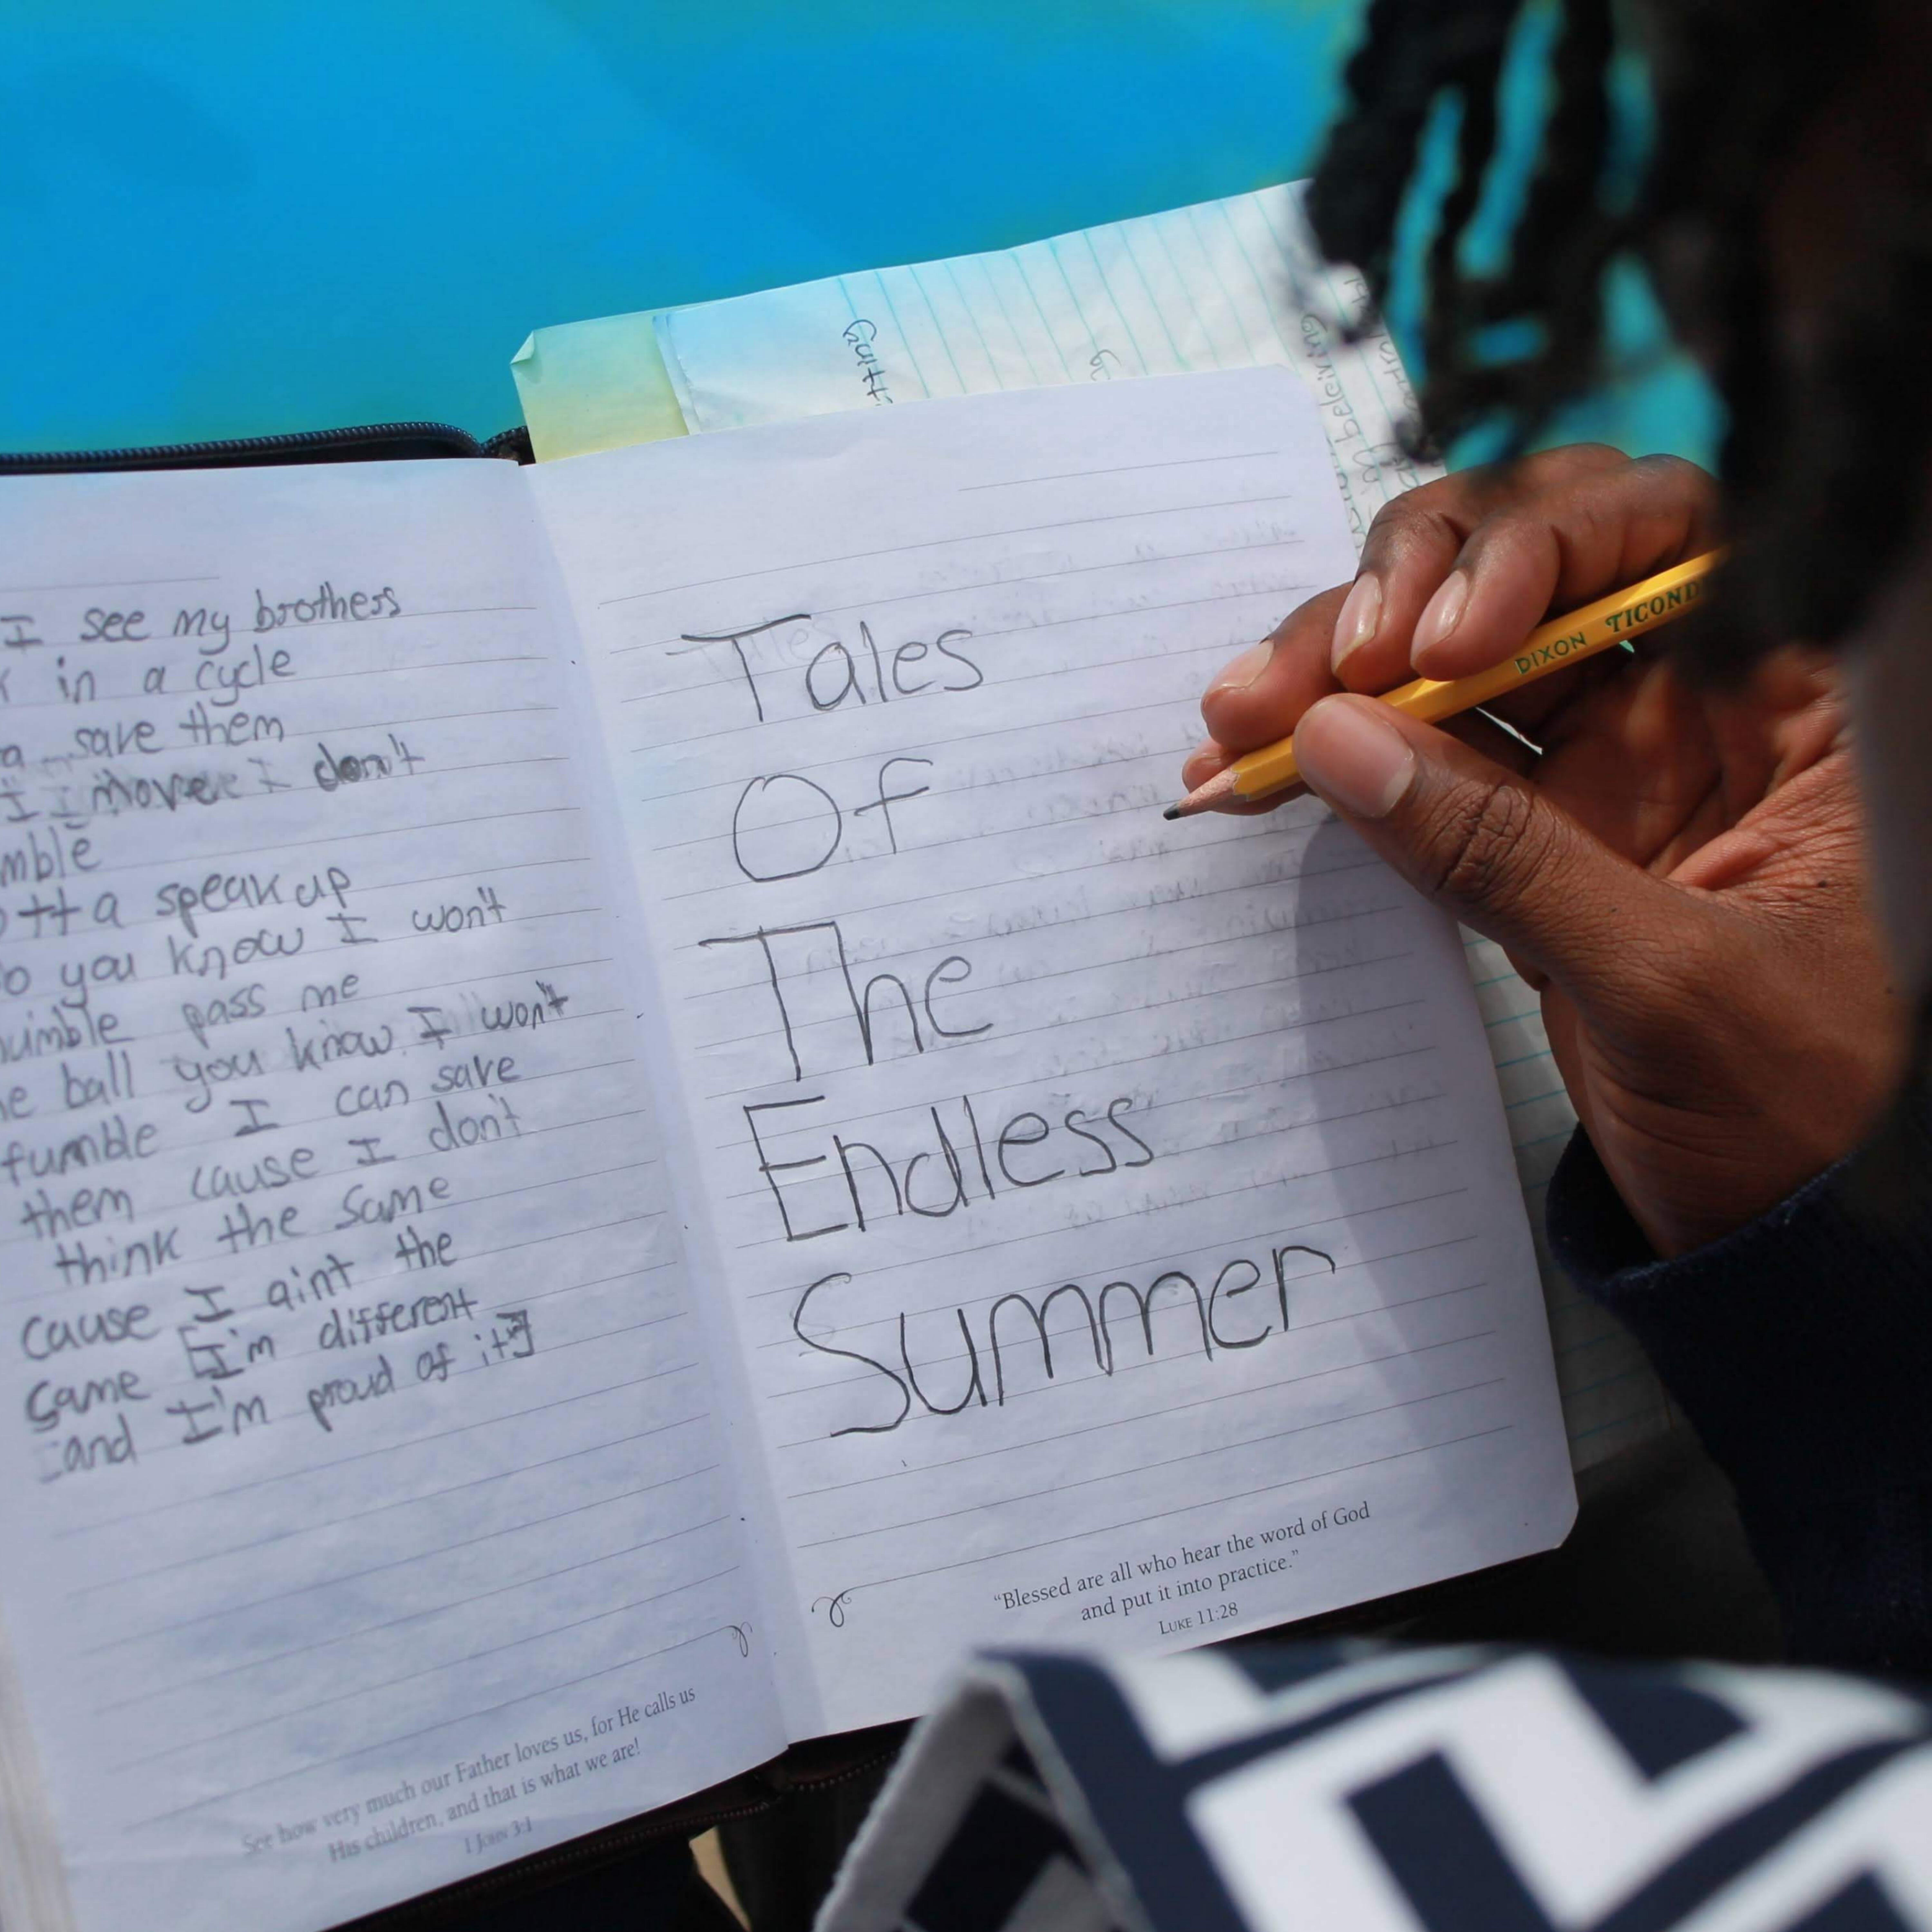 I see my brothers
in a cycle
save them
I move I don't
mble
otta speak up
o you know I won't
umble pass me
he ball you know I won't
fumble I can save
them cause I don't
think the same
cause I aint the
same [I'm different
and I'm proud of it]
See how very much our Father loves us, for He calls us
His children, and that is what we are!
1 John 3:1
Tales
Of
The
Endless
Summer
“Blessed are all who hear the word of God
and put it into practice.”
Luke 11:28
DIXON TICOND